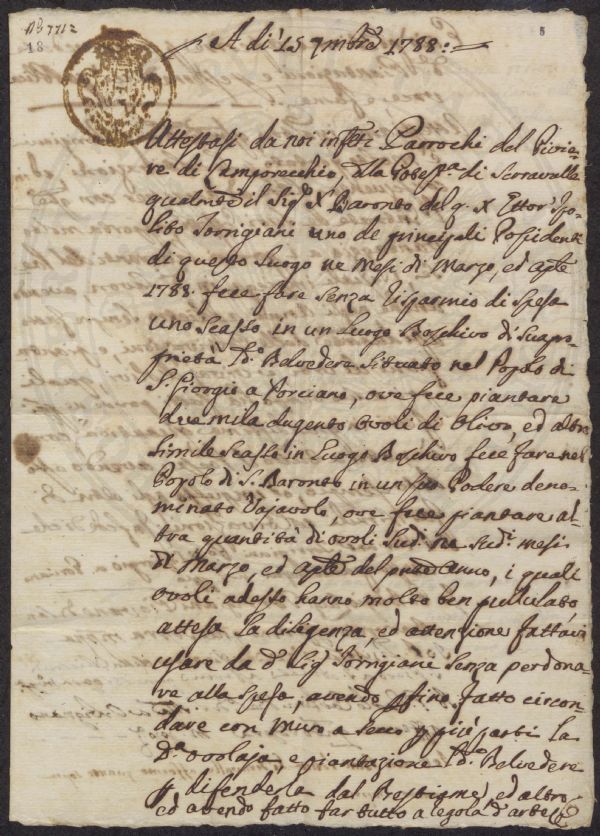 N.º 7712
18
5
A di 15 7mbre 1788:
Attestasi da noi inffti Parrochi del Pivie-
re di Camporecchio, alla Potest.a di Serravalle
qualmte il Sig.e X Baronto del q. X Ettor' Ipo-
lito Torrigiani uno de principali Possidenti
di questo Luogo ne Mesi di Marzo, ed aple
1788. fece fare senza risparmio di spesa
uno Scasso in un Luogo Boschivo di Sua pro-
prietà d.o Belvedere situato nel Popolo di
S. Giorgio a Porciano, ove fece piantare
due mila dugento Ovoli di Olivo, ed altro
simile scasso in Luogo Boschivo fece fare nel
Popolo di S. Baronto in un suo Podere deno-
minato Vajavolo, ove fece piantare al-
tra quantità di ovoli sud.i ne sud.i mesi
di Marzo, ed aple del pnte Anno, i quali
ovoli adesso hanno molto ben pullulato,
attesa la diligenza, ed attenzione fattavi
usare da d.o Sig.e Torrigiani senza perdona-
re alla spesa, avendo pfino fatto circon-
dare con muro a secco p più parti la
D.a ovolaja, e piantazione d.o Belvedere
p difenderla dal Bestiame, ed altro
ed avendo fatto far tutto a regola d'arte